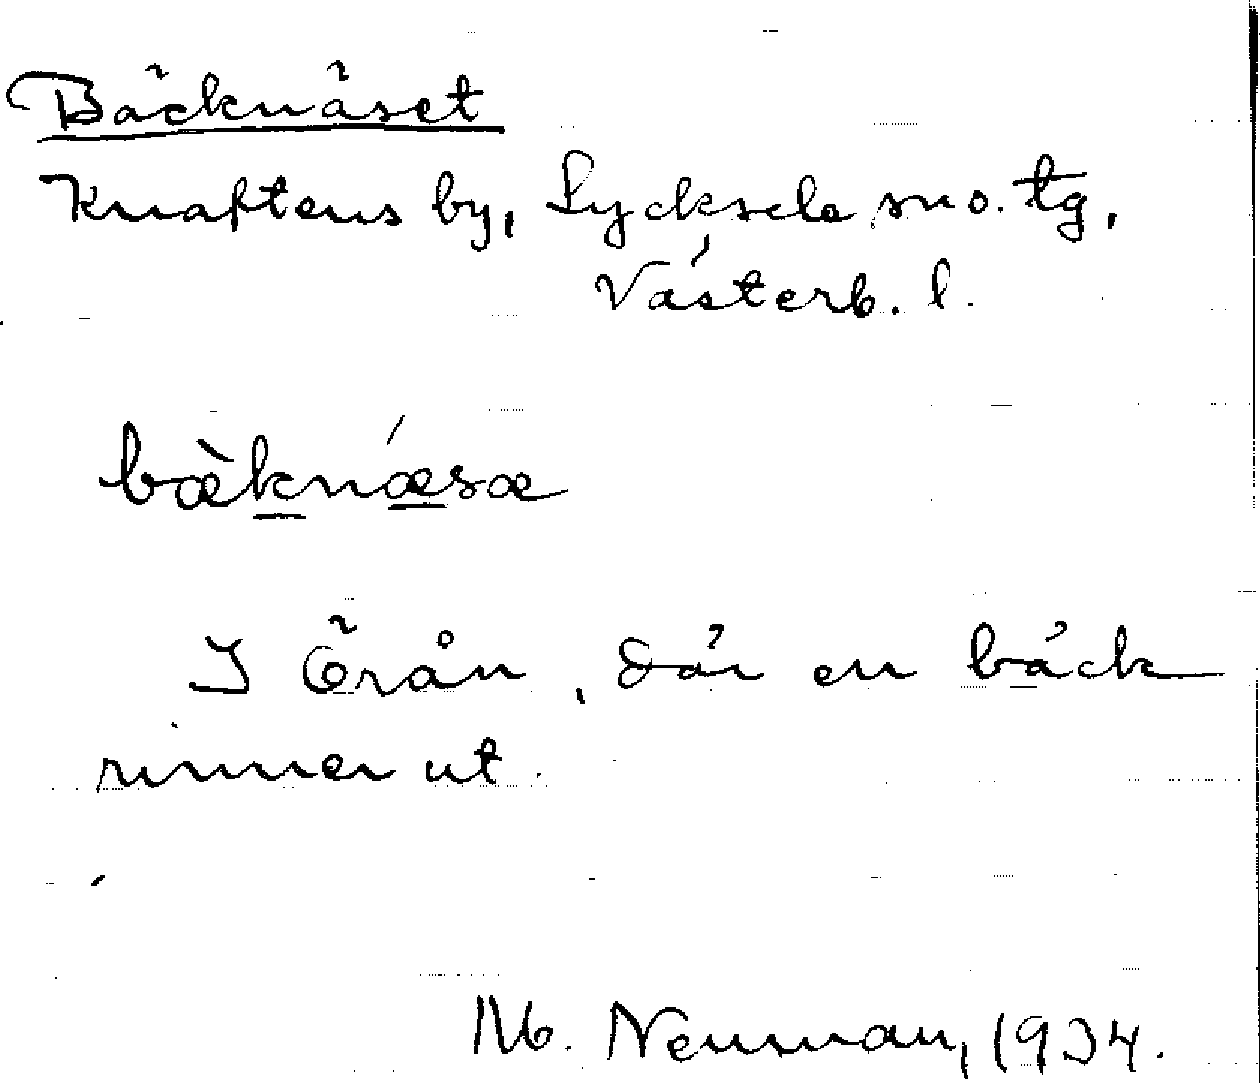 Bäcknäset
Knaftens by, Lycksele sn o. tg,
Västerb. l.
bæ̀knǽsæ
I Örån, där en bäck
rinner ut.
M. Neuman, 1934.